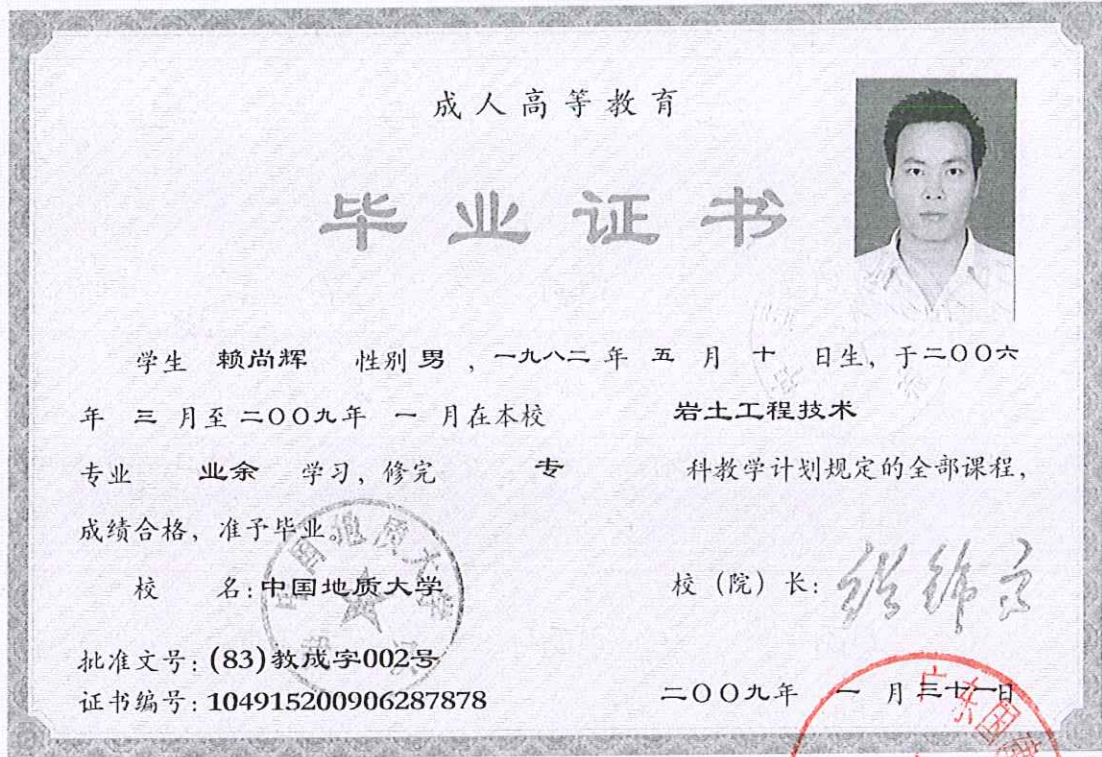 成人高等教育
毕业证书
学生 赖尚辉 性别 男 ，一九八二 年 五 月 十 日生，于二〇〇六
年 三 月至 二〇〇九年 一 月在本校 岩土工程技术
专业 业余 学习，修完 专 科教学计划规定的全部课程，
成绩合格，准予毕业。
校 名：中国地质大学 校（院）长：
批准文号：(83)教成字002号
证书编号：104915200906287878 二〇〇九年 一 月 三十一日
中国地质大学
广东国